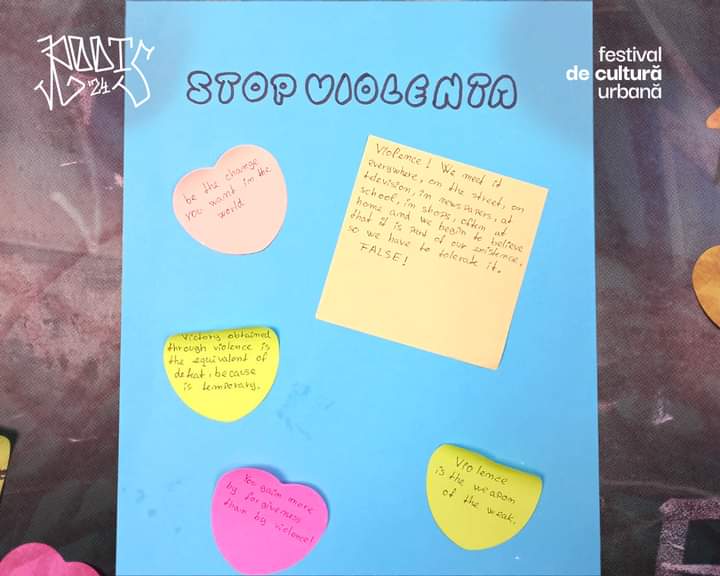 ROOTS
'24
festival
de cultură
urbană
STOP VIOLENTA
be the change
you want in the
world
Violence! We meet it
everywhere, on the street, on
television, in newspapers, at
school, in shops, often at
home and we begin to believe
that it is part of our existence,
so we have to tolerate it.
FALSE!
Victory obtained
through violence is
the equivalent of
defeat, because
is temporary.
You gain more
by forgiveness
than by violence!
Violence
is the weapon
of the weak.